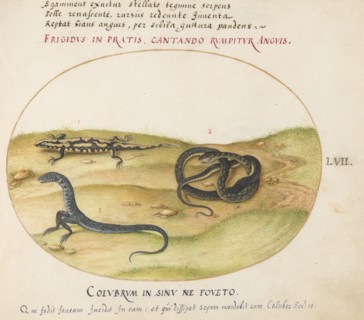 Squameus exuitur stellato tegmine serpens
Pelle renascente, rursus redeunte Juventa
Reptat hians anguis, per sibila guttura pandens.
FRIGIDUS IN PRATIS, CANTANDO RUMPITUR ANGUIS.
LVII.
COLUBRUM IN SINU NE FOVETO.
Qui fodit foveam incidet in eam: et qui dissipat sepem mordebit eum Coluber.